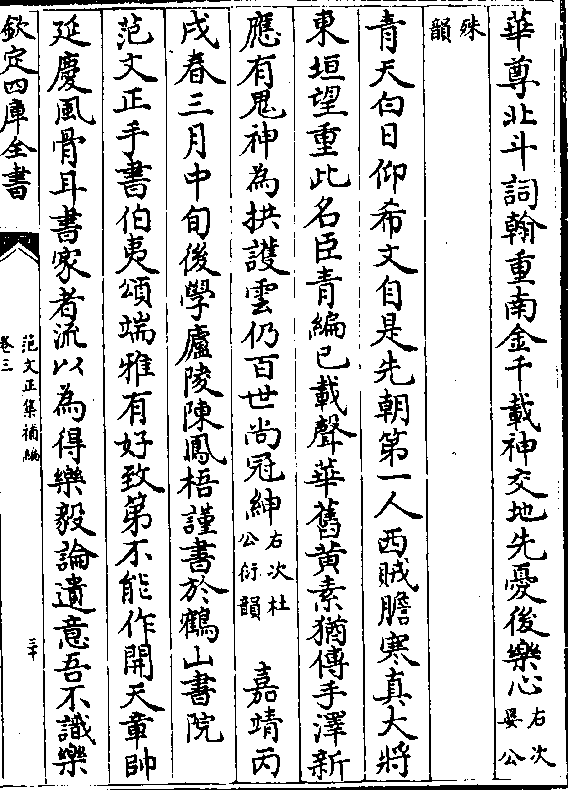 華尊北斗詞翰重南金千載神交地先憂後樂心右次晏公
殊韻
青天白日仰希文自是先朝第一人西賊膽寒真大將
東垣望重此名臣青編已載聲華舊黄素猶傳手澤新
應有鬼神為拱護雲仍百世尚冠紳右次杜公衍韻　嘉靖丙
戌春三月中旬後學廬陵陳鳳梧謹書於鶴山書院
范文正手書伯夷頌端雅有好致第不能作開天章帥
延慶風骨耳書家者流以為得樂毅論遺意吾不識樂
欽定四庫全書
范文正集補編
卷三
三十